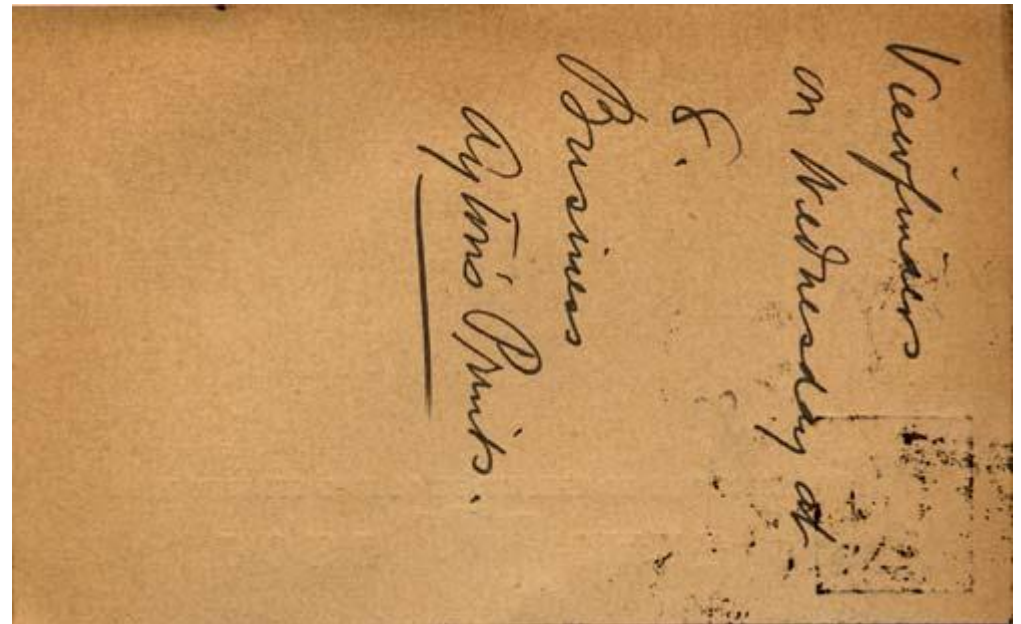 Viewfinders
on Wednesday at
8.
Business
Ayton's Prints.